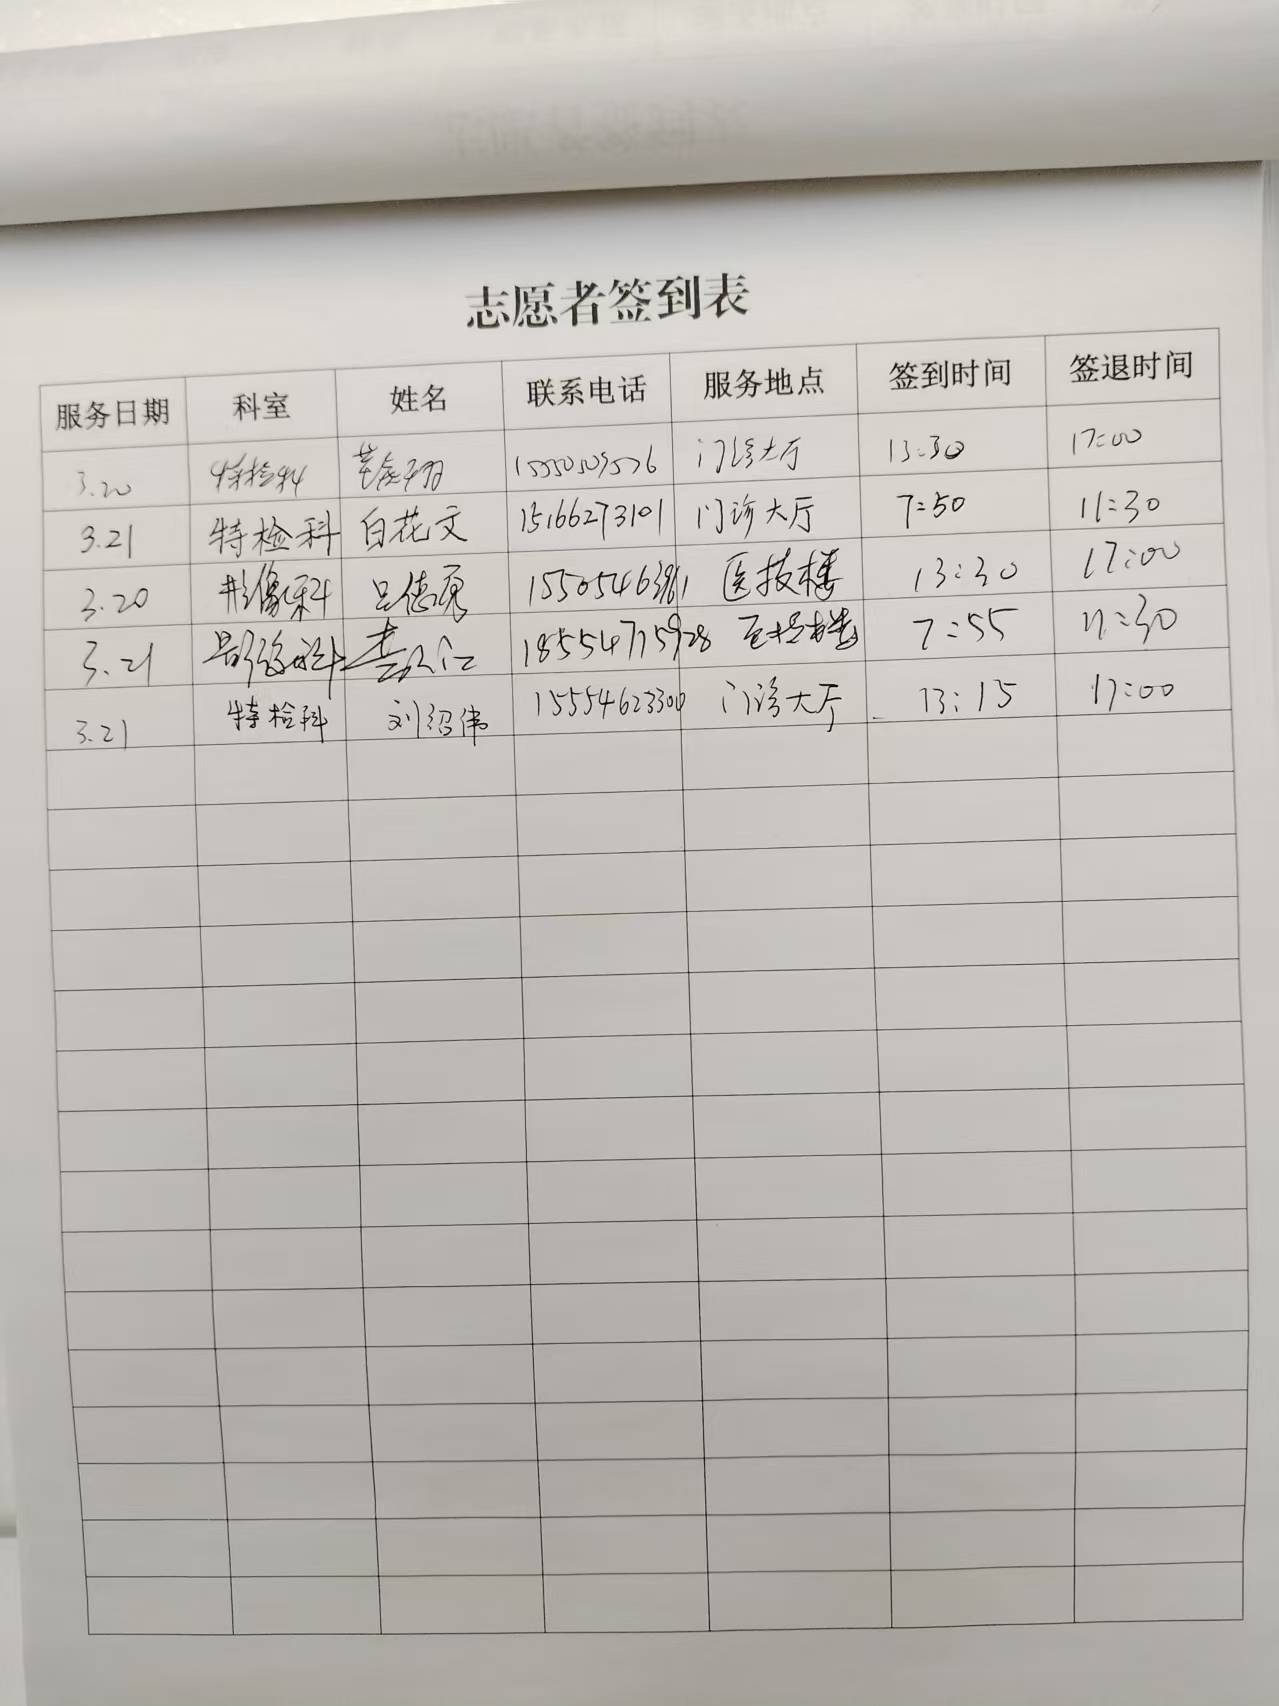 志愿者签到表
服务日期 科室 姓名 联系电话 服务地点 签到时间 签退时间
3.20 特检科 门诊大厅 13:30 17:00
3.21 特检科 白花文 15166273101 门诊大厅 7:50 11:30
3.20 影像科 吕德勇 医技楼 13:30 17:00
3.21 影像科 18554715928 医技楼 7:55 11:30
3.21 特检科 刘绍伟 15554623300 门诊大厅 13:15 17:00